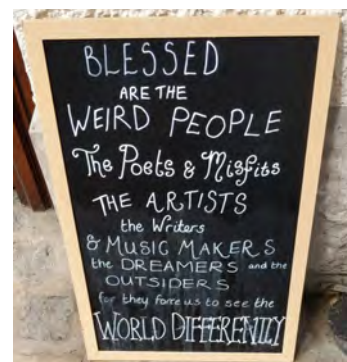 BLESSED
ARE THE
WEIRD PEOPLE
The Poets & Misfits
THE ARTISTS
the Writers
& MUSIC MAKERS
the DREAMERS and the
OUTSIDERS
for they force us to see the
WORLD DIFFERENTLY